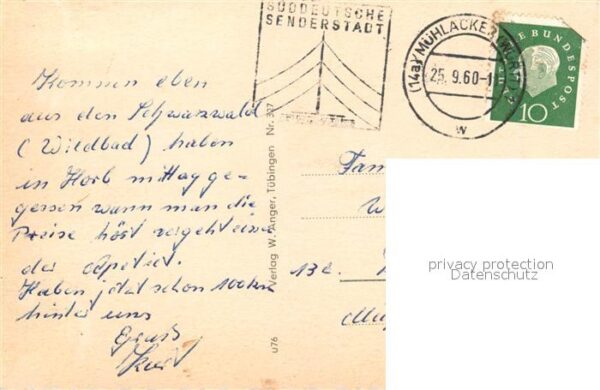 SÜDDEUTSCHE
SENDERSTADT
(14a) MÜHLACKER (WÜRTT)
25.9.60-1
w
DEUTSCHE BUNDESPOST
10
Kommen eben
aus den Schwarzwald
(Wildbad) haben
in Horb mittag ge-
gessen wann man die
Preise höst vergeht eine
der Apetiet.
Haben jetzt schon 100 km
hinter uns
Gruß
Karl
Verlag W. Anger, Tübingen Nr. 317
u76
Fam
W
13a
Mü
privacy protection
Datenschutz